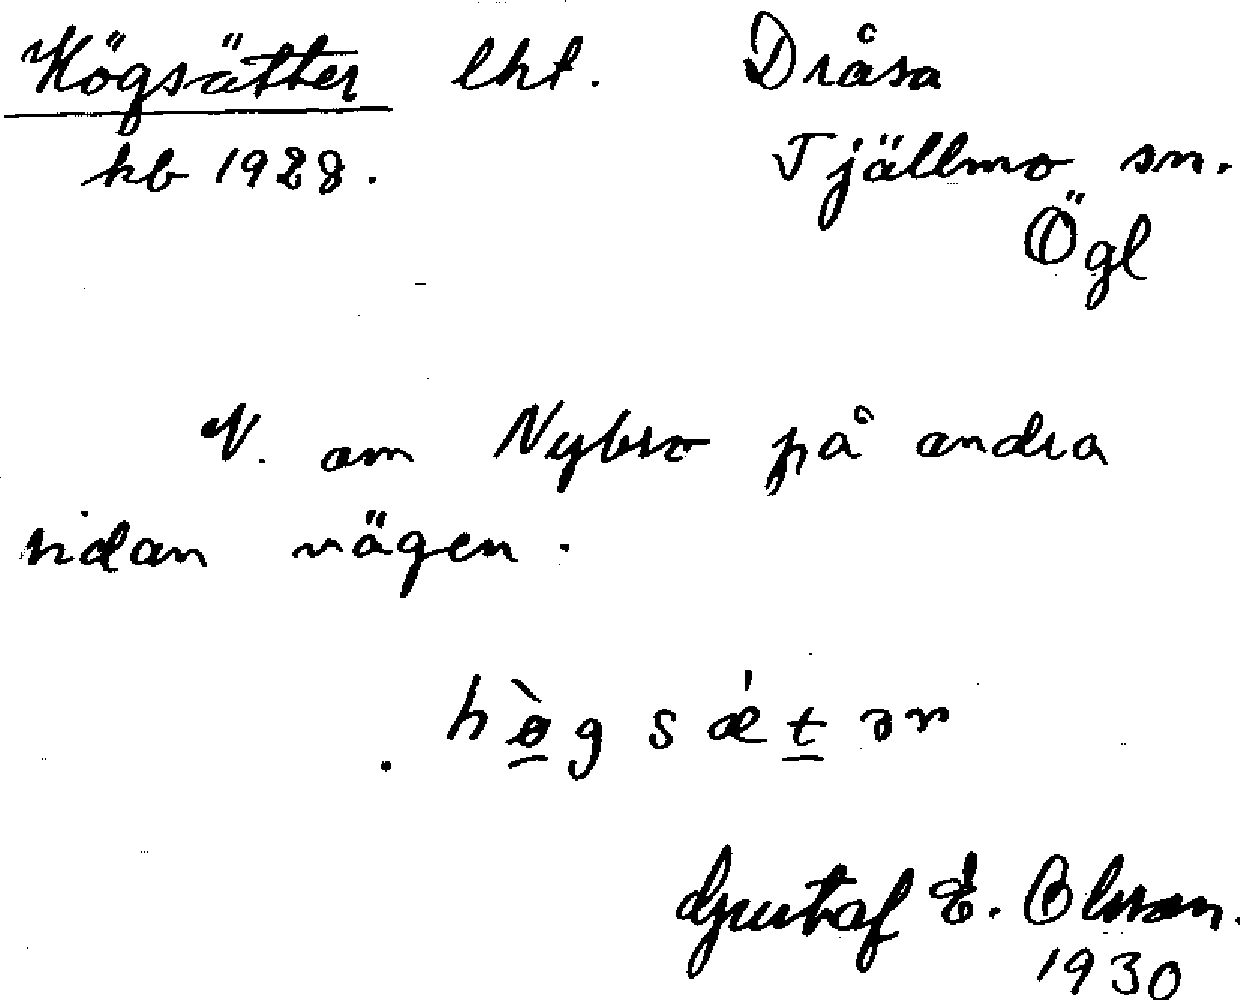 Högsätter lht. Dråsa
kb 1928. Tjällmo sn.
Ögl
V. om Nybro på andra
sidan vägen.
hø̀gsǽtər
Gustaf E. Olsson.
1930